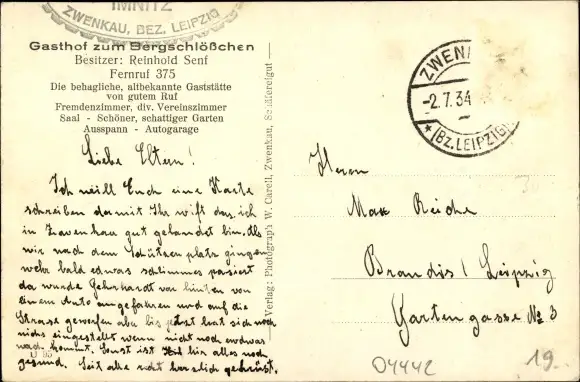 IMNITZ
ZWENKAU, BEZ. LEIPZIG
Gasthof zum Bergschlößchen
Besitzer: Reinhold Senf
Fernruf 375
Die behagliche, altbekannte Gaststätte
von gutem Ruf
Fremdenzimmer, div. Vereinszimmer
Saal - Schöner, schattiger Garten
Ausspann - Autogarage
Liebe Eltern!
Ich will Euch eine Karte
schreiben damit Ihr wißt das ich
in Zwenkau gut gelandet bin. Als
wir nach dem Schützen platz gingen
wehr bald etwas schlimmes pasiert
da wurde Gehrhardt von hinten von
einem Auto angefahren und auf die
Strase geworfen aber bis jetzt hat sich noch
nichs eingestellt wenn nicht noch etwas
nach kommt. Sonst ist bei alles noch
gesund. Seit alle recht herzlich gegrüst.
Verlag: Photograph W. Carell, Zwenkau, Schäfereigut
ZWENK
-2.7.34
* (BZ. LEIPZIG)
Herrn
Max Reiche
Brandis / Leipzig
Gartengasse № 3
04442
19.